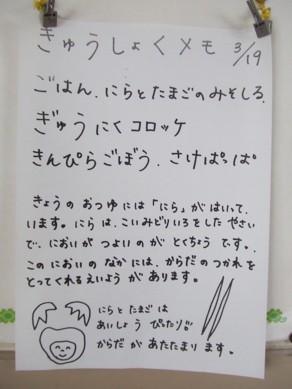 きゅうしょくメモ 3/19
ごはん、にらとたまごのみそしる、
ぎゅうにくコロッケ
きんぴらごぼう、さけぱっぱ
きょうのおつゆには「にら」がはいって
います。にらは、こいみどりいろをしたやさい
で、においがつよいのがとくちょうです。
このにおいのなかには、からだのつかれを
とってくれるえいようがあります。
にらとたまごは
あいしょうぴったり!!
からだがあたたまります。